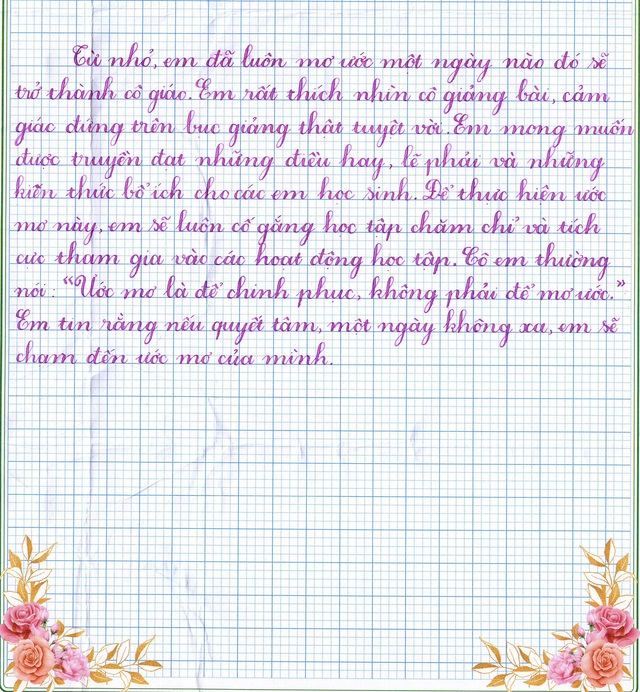 Từ nhỏ, em đã luôn mơ ước một ngày nào đó sẽ
trở thành cô giáo. Em rất thích nhìn cô giảng bài, cảm
giác đứng trên bục giảng thật tuyệt vời. Em mong muốn
được truyền đạt những điều hay, lẽ phải và những
kiến thức bổ ích cho các em học sinh. Để thực hiện ước
mơ này, em sẽ luôn cố gắng học tập chăm chỉ và tích
cực tham gia vào các hoạt động học tập. Cô em thường
nói: “Ước mơ là để chinh phục, không phải để mơ ước.”
Em tin rằng nếu quyết tâm, một ngày không xa, em sẽ
chạm đến ước mơ của mình.